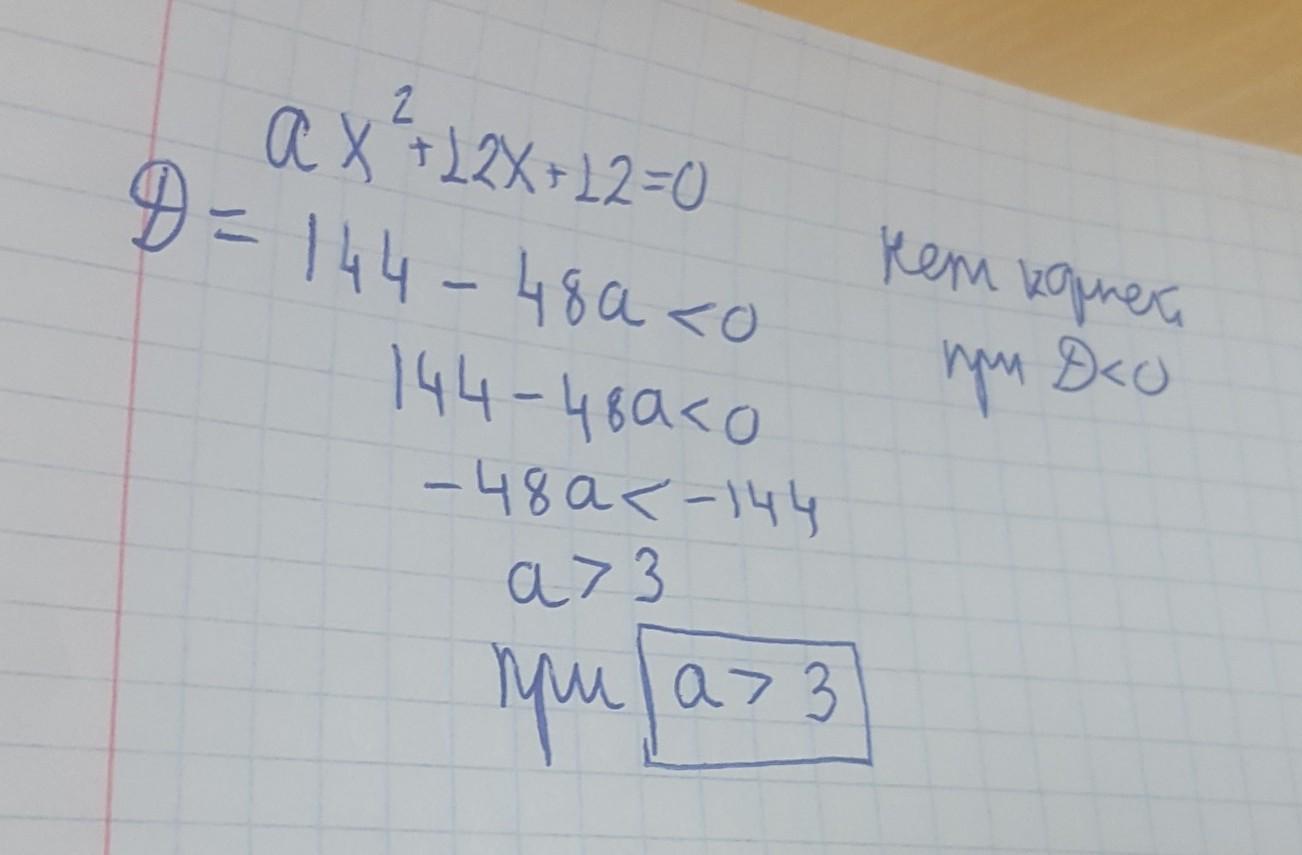 ax²+12x+12=0
D = 144 - 48a < 0
нет корней
при D<0
144 - 48a < 0
-48a < -144
a > 3
при a > 3